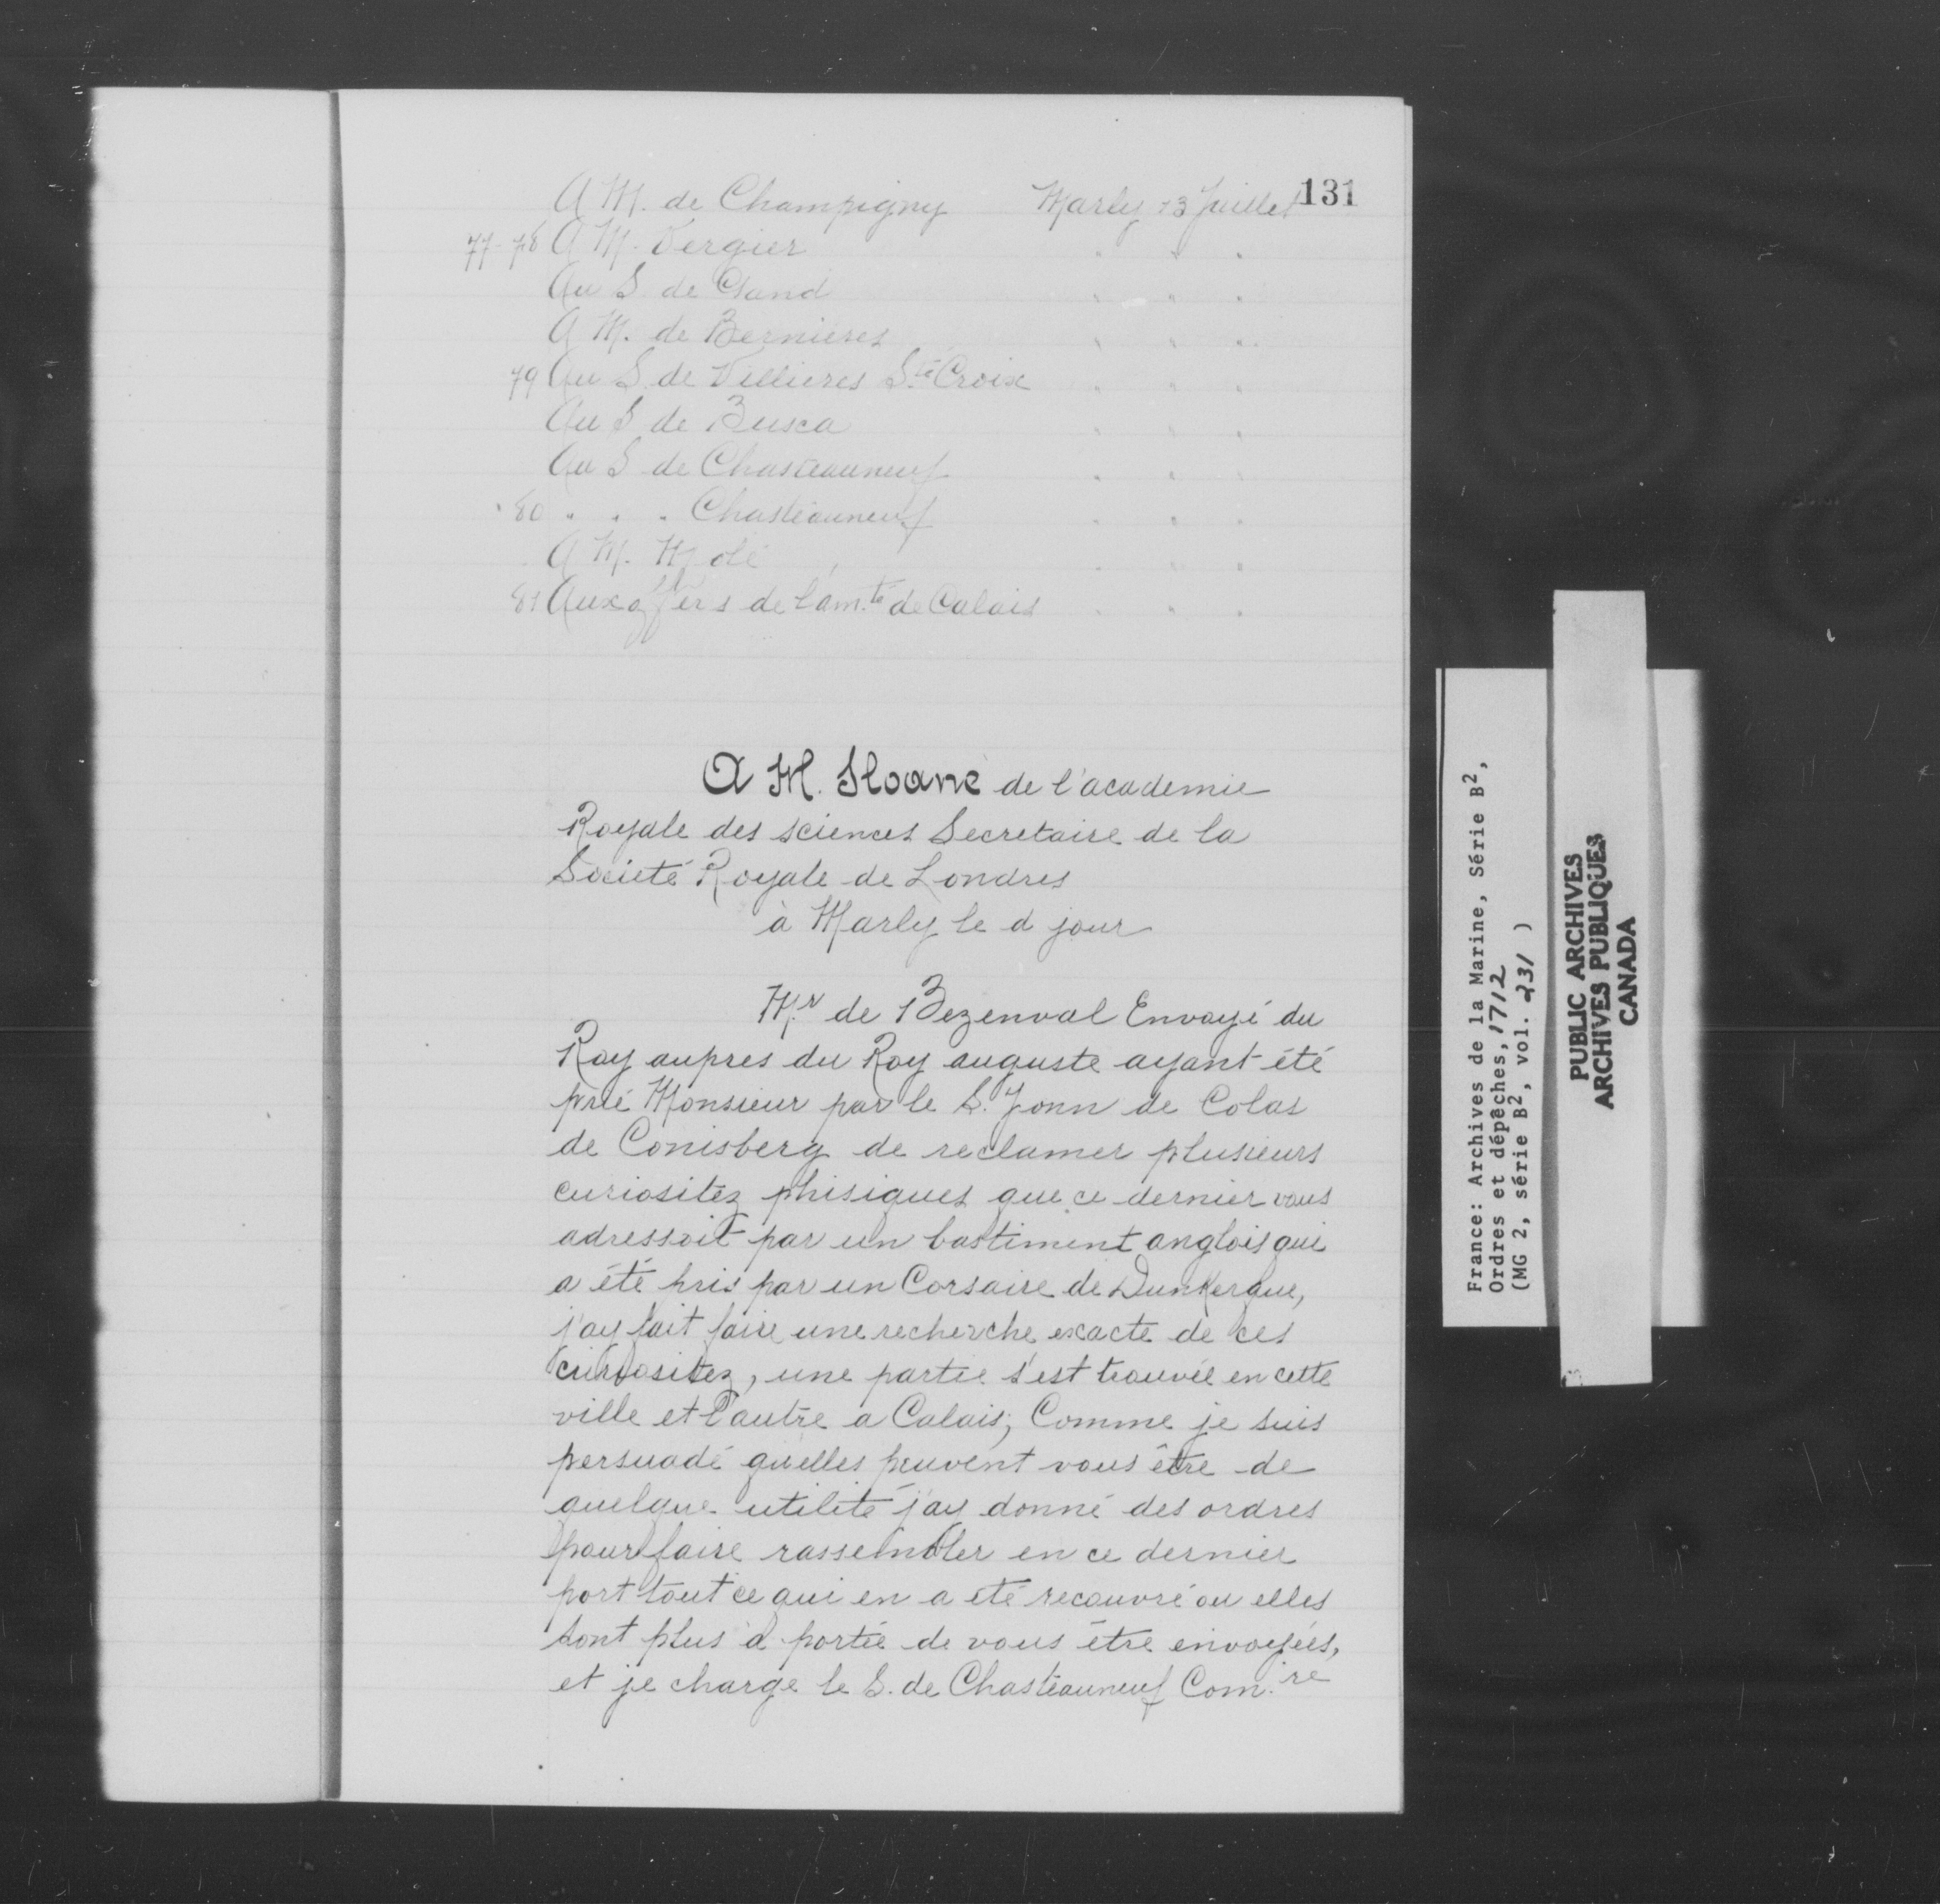 131
A M. de Champigny Marly 13 Juillet
77-78 A M. Vergier " " "
Au S. de Gand " " "
A M. de Bernieres " " "
79 Au S. de Villieres Ste Croix " " "
Au S de Busca " " "
Au S de Chasteauneuf " " "
80 " " " Chasteauneuf " " "
A M. Molé " " "
81 Aux offers de l'am.té de Calais " " "
A M. Sloane de l'academie
Royale des sciences Secretaire de la
Societé Royale de Londres
à Marly le d jour
M.r de Bezenval Envoyé du
Roy aupres du Roy auguste ayant été
prié Monsieur par le S. Jonn de Colas
de Conisberg de reclamer plusieurs
curiositez phisiques que ce dernier vous
adressoit par un bastiment anglois qui
a été pris par un Corsaire de Dunkerque,
j'ay fait faire une recherche exacte de ces
curiositez, une partie s'est trouvée en cette
ville et l'autre a Calais; Comme je suis
persuadé qu'elles peuvent vous être de
quelque utilité j'ay donné des ordres
pour faire rassembler en ce dernier
port tout ce qui en a été recouvré ou elles
sont plus à portée de vous être envoyées,
et je charge le S. de Chasteauneuf Com.re
France: Archives de la Marine, Série B2,
Ordres et dépêches, 1712
(MG 2, série B2, vol. 231 )
PUBLIC ARCHIVES
ARCHIVES PUBLIQUES
CANADA